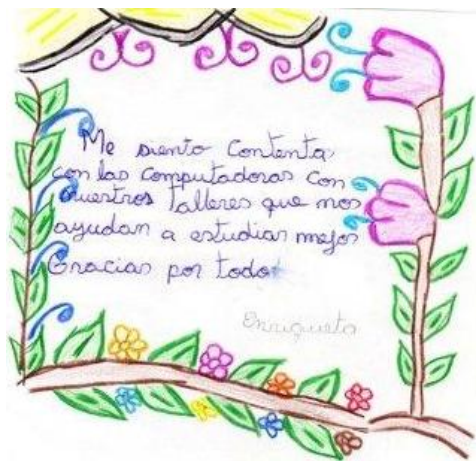 Me siento Contenta
con las Computadoras con
nuestros Talleres que nos
ayudan a estudiar mejor
Gracias por todo.
Enriqueta